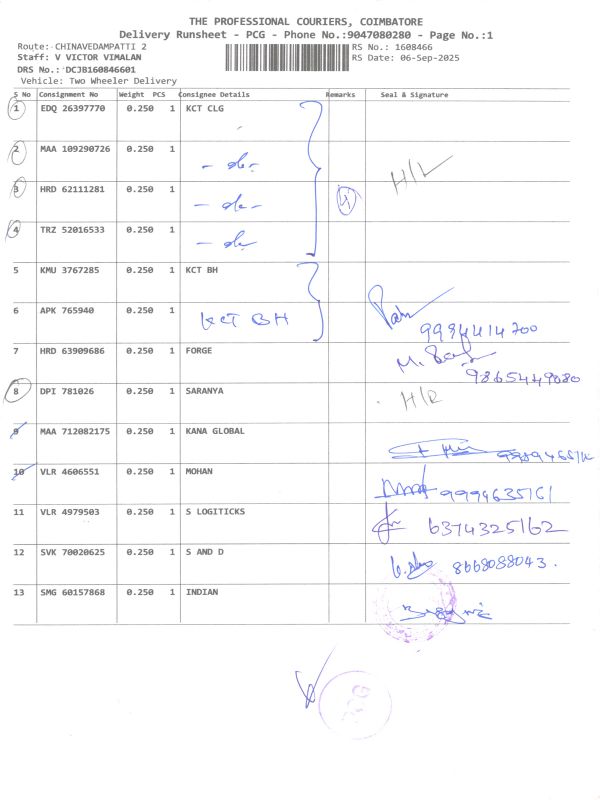 THE PROFESSIONAL COURIERS, COIMBATORE
Delivery Runsheet - PCG - Phone No.:9047080280 - Page No.:1
Route: CHINAVEDAMPATTI 2 RS No.: 1608466
Staff: V VICTOR VIMALAN RS Date: 06-Sep-2025
DRS No.: DCJB160846601
Vehicle: Two Wheeler Delivery
S No Consignment No Weight PCS Consignee Details Remarks Seal & Signature
1 EDQ 26397770 0.250 1 KCT CLG
2 MAA 109290726 0.250 1 - do -
3 HRD 62111281 0.250 1 - do - 4 H/L
4 TRZ 52016533 0.250 1 - do -
5 KMU 3767285 0.250 1 KCT BH
6 APK 765940 0.250 1 KCT BH
7 HRD 63909686 0.250 1 FORGE
8 DPI 781026 0.250 1 SARANYA H/R
9 MAA 712082175 0.250 1 KANA GLOBAL
10 VLR 4606551 0.250 1 MOHAN 9994635761
11 VLR 4979503 0.250 1 S LOGITICKS 6374325162
12 SVK 70020625 0.250 1 S AND D 8668088043.
13 SMG 60157868 0.250 1 INDIAN